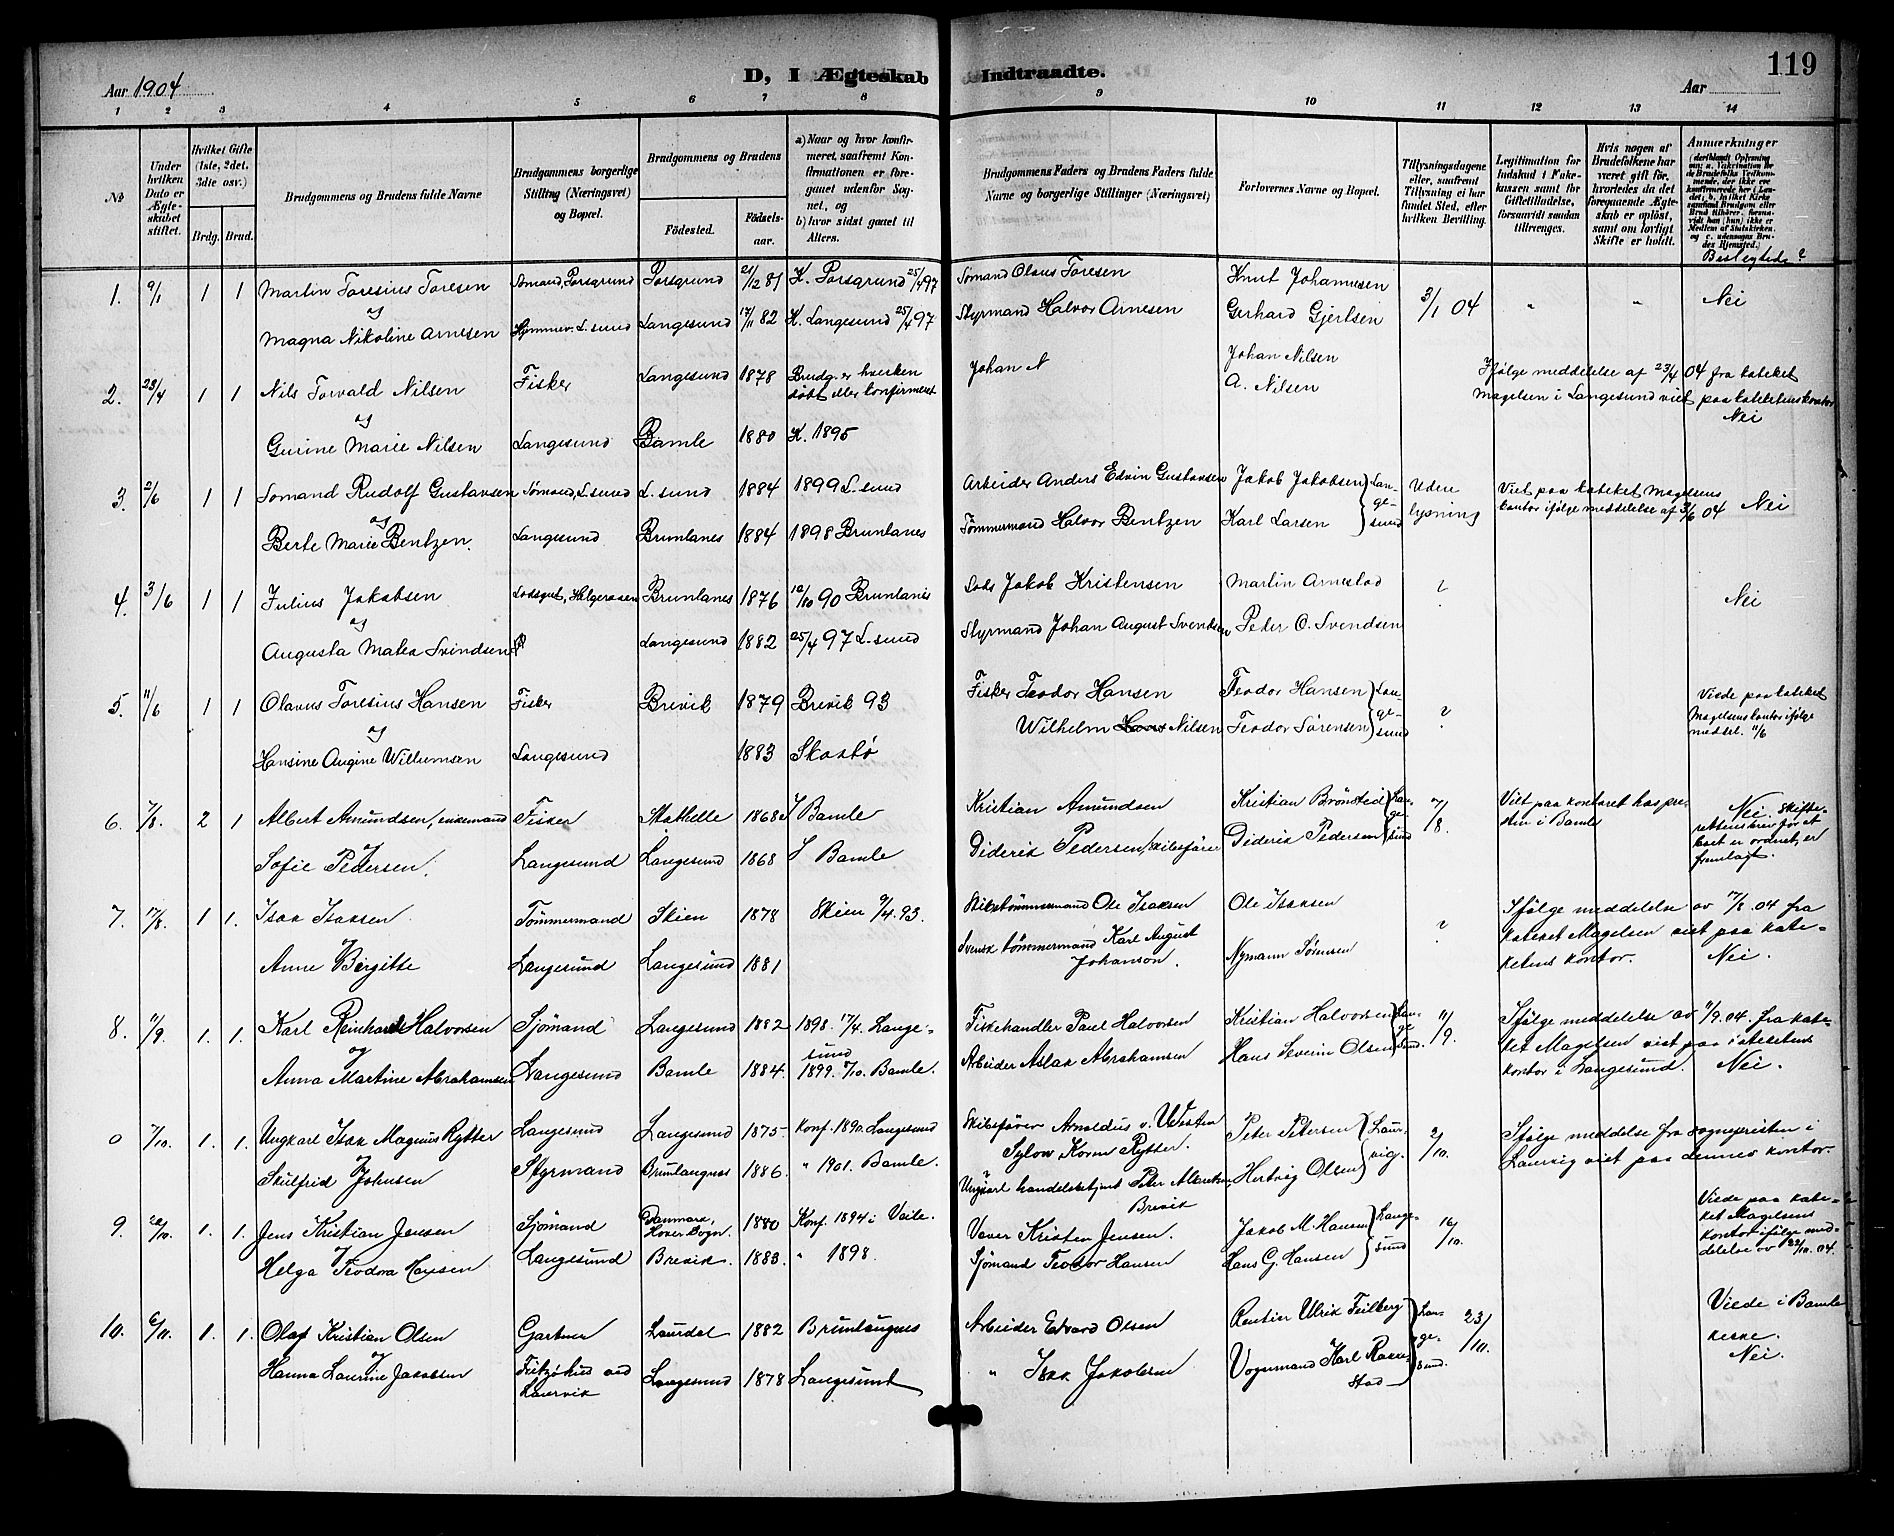 119
D, I Ægteskab Indtraadte.
Aar 1904
Aar
1 2 3 4 5 6 7 8 9 10 11 12 13 14
No
Under hvilken Dato er Ægteskabet stiftet.
Hvilket Gifte (1ste, 2det. 3die osv.)
Brdg. Brud.
Brudgommens og Brudens fulde Navne
Brudgommens borgerlige Stilling (Næringsvei) og Bopæl.
Brudgommens og Brudens
Födested.
Födselsaar.
a) Naar og hvor konfirmeret, saafremt Konfirmationen er foregaaet udenfor Sognet, og
b) hvor sidst gaaet til Alters.
Brudgommens Faders og Brudens Faders fulde Navne og borgerlige Stillinger (Næringsvei)
Forlovernes Navne og Bopæl.
Tillysningsdagene eller, saafremt Tillysning ei har fundet Sted, efter hvilken Bevilling.
Legitimation for Indskud i Enkekassen samt for Giftetilladelse, forsaavidt saadan tiltrænges.
Hvis nogen af Brudefolkene har været gift för, hvorledes da det foregaaende Ægteskab er oplöst, samt om lovligt Skifte er holdt.
Anmerkninger
Beslegtede?
1. 9/1 1 1 Martin Toresius Toresen Sømand, Porsgrund Porsgrund 21/12 81 K. Porsgrund 25/4 97 Sømand Olaus Toresen Knut Johannesen 3/1 04 " " Nei
og
Magna Nikoline Arnesen Hjemmev. L.sund Langesund 17/11 82 K. Langesund 25/4 97 Styrmand Halvor Arnesen Gerhard Gjertsen
2. 23/4 1 1 Nils Torvald Nilsen Fisker Langesund 1878 Brudg. er hverken døbt eller konfirmeret Johan N Johan Nilsen A. Nilsen Ifølge meddelelse af 23/4 04 fra kateket Magelsen i Langesund viet paa kateketens kontor Nei
og
Gurine Marie Nilsen Langesund Bamle 1880 K. 1895
3. 2/6 1 1 Sømand Rudolf Gustavsen Sømand, L.sund L.sund 1884 1899 L.sund Arbeider Anders Edvin Gustavsen Jakob Jakobsen Langesund Uden lysning Viet paa kateket Magelsens kontor ifølge meddelelse af 2/6 04 Nei
og
Berte Marie Bentzen. Langesund Brunlanes 1884 1898 Brunlanes Tømmermand Halvor Bentzen Karl Larsen
4. 3/6 1 1 Julius Jakobsen Lodsgut, Helgeroaen Brunlanes 1876 12/10 90 Brunlanes Lods Jakob Kristensen Martin Arnestad ? Nei
og
Augusta Matea Svindsen Langesund 1882 25/4 97 L.sund Styrmand Johan August Svendsen Peder O. Svendsen
5. 11/6 1 1 Olavus Toresius Hansen Fisker Brevik 1879 Brevik 93 Fisker Teodor Hansen Teodor Hansen Langesund ? Viede paa kateket Magelsens kontor ifølge meddel. 11/6
og
Hansine Augine Willumsen Langesund 1883 Skaatø Wilhelm Nilsen Teodor Sørensen
6. 7/8. 2 1 Albert Amundsen, enkemand Fisker Stathelle 1868 I Bamle Kristian Amundsen Kristian Brønsted Langesund 7/8. Viet paa kontoret hos presten i Bamle Nei. Skifterettens brev for at boet er ordnet, er fremlagt.
og
Sofie Pedersen. Langesund Langesund 1868 I Bamle Diderik Pedersen, skibsfører Diderik Pedersen
7. 17/8. 1 1. Isak Isaksen Tømmermand Skien 1878 Skien 9/4.93. Skibstømmermand Ole Isaksen Ole Isaksen ? Ifølge meddelelse av 17/8.04 fra kateket Magelsen viet paa kateketens kontor. Nei.
og
Anne Birgitte Langesund Langesund 1881 Svensk tømmermand Karl August Johanson. Nymann Sørensen
8. 11/9. 1. 1. Karl Reinhard Halvorsen Sjømand Langesund 1882 1898. 17/4. Langesund Fiskehandler Paul Halvorsen Kristian Halvorsen Langesund. 11/9. Ifølge meddelelse av 11/9.04. fra kateket Magelsen viet paa kateketens kontor i Langesund. Nei.
og
Anna Martine Abrahamsen Langesund Bamle 1884. 1899. 7/10. Bamle. Arbeider Aslak Abrahamsen Hans Severin Olsen
0 7/10. 1. 1. Ungkarl Isak Magnus Rytter Langesund Langesund 1875. Konf. 1890. Langesund Skibsfører Arnoldus v. Westen Sylow Koren Rytter. Peter Petersen Laurvig. 2/10. Ifølge meddelse fra sognepresten i Laurvig viet paa dennes kontor.
og
Skulfrid Johnsen Styrmand Brunlangnes 1886. " 1901. Bamle. Ungkarl handelsbetjent Peter Albretsen, Brevik Hertvig Olsen
9. 22/10. 1. 1. Jens Kristian Jensen Sjømand Danmark, Hover Sogn. 1880 Konf. 1894 i Veile. Væver Kristen Jensen. Jakob M. Hansen Langesund 16/10. Viede paa kateket Magelsens kontor ifølge meddelelse av 22/10.04.
og
Helga Teodora Hansen Langesund Brevik. 1883. " 1898. Sjømand Teodor Hansen Hans G. Hansen
10. 6/11. 1. 1. Olaf Kristian Olsen Gartner Laurdal 1882 Brunlaugnes Arbeider Edvard Olsen Rentier Ulrik Feilberg Langesund. 23/10. Viede i Bamle kirke. Nei.
og
Hanna Laurine Jakobsen Fritzøhus ved Laurvik Langesund 1878 Langesund " Isak Jakobsen Vognmand Karl Rakkestad